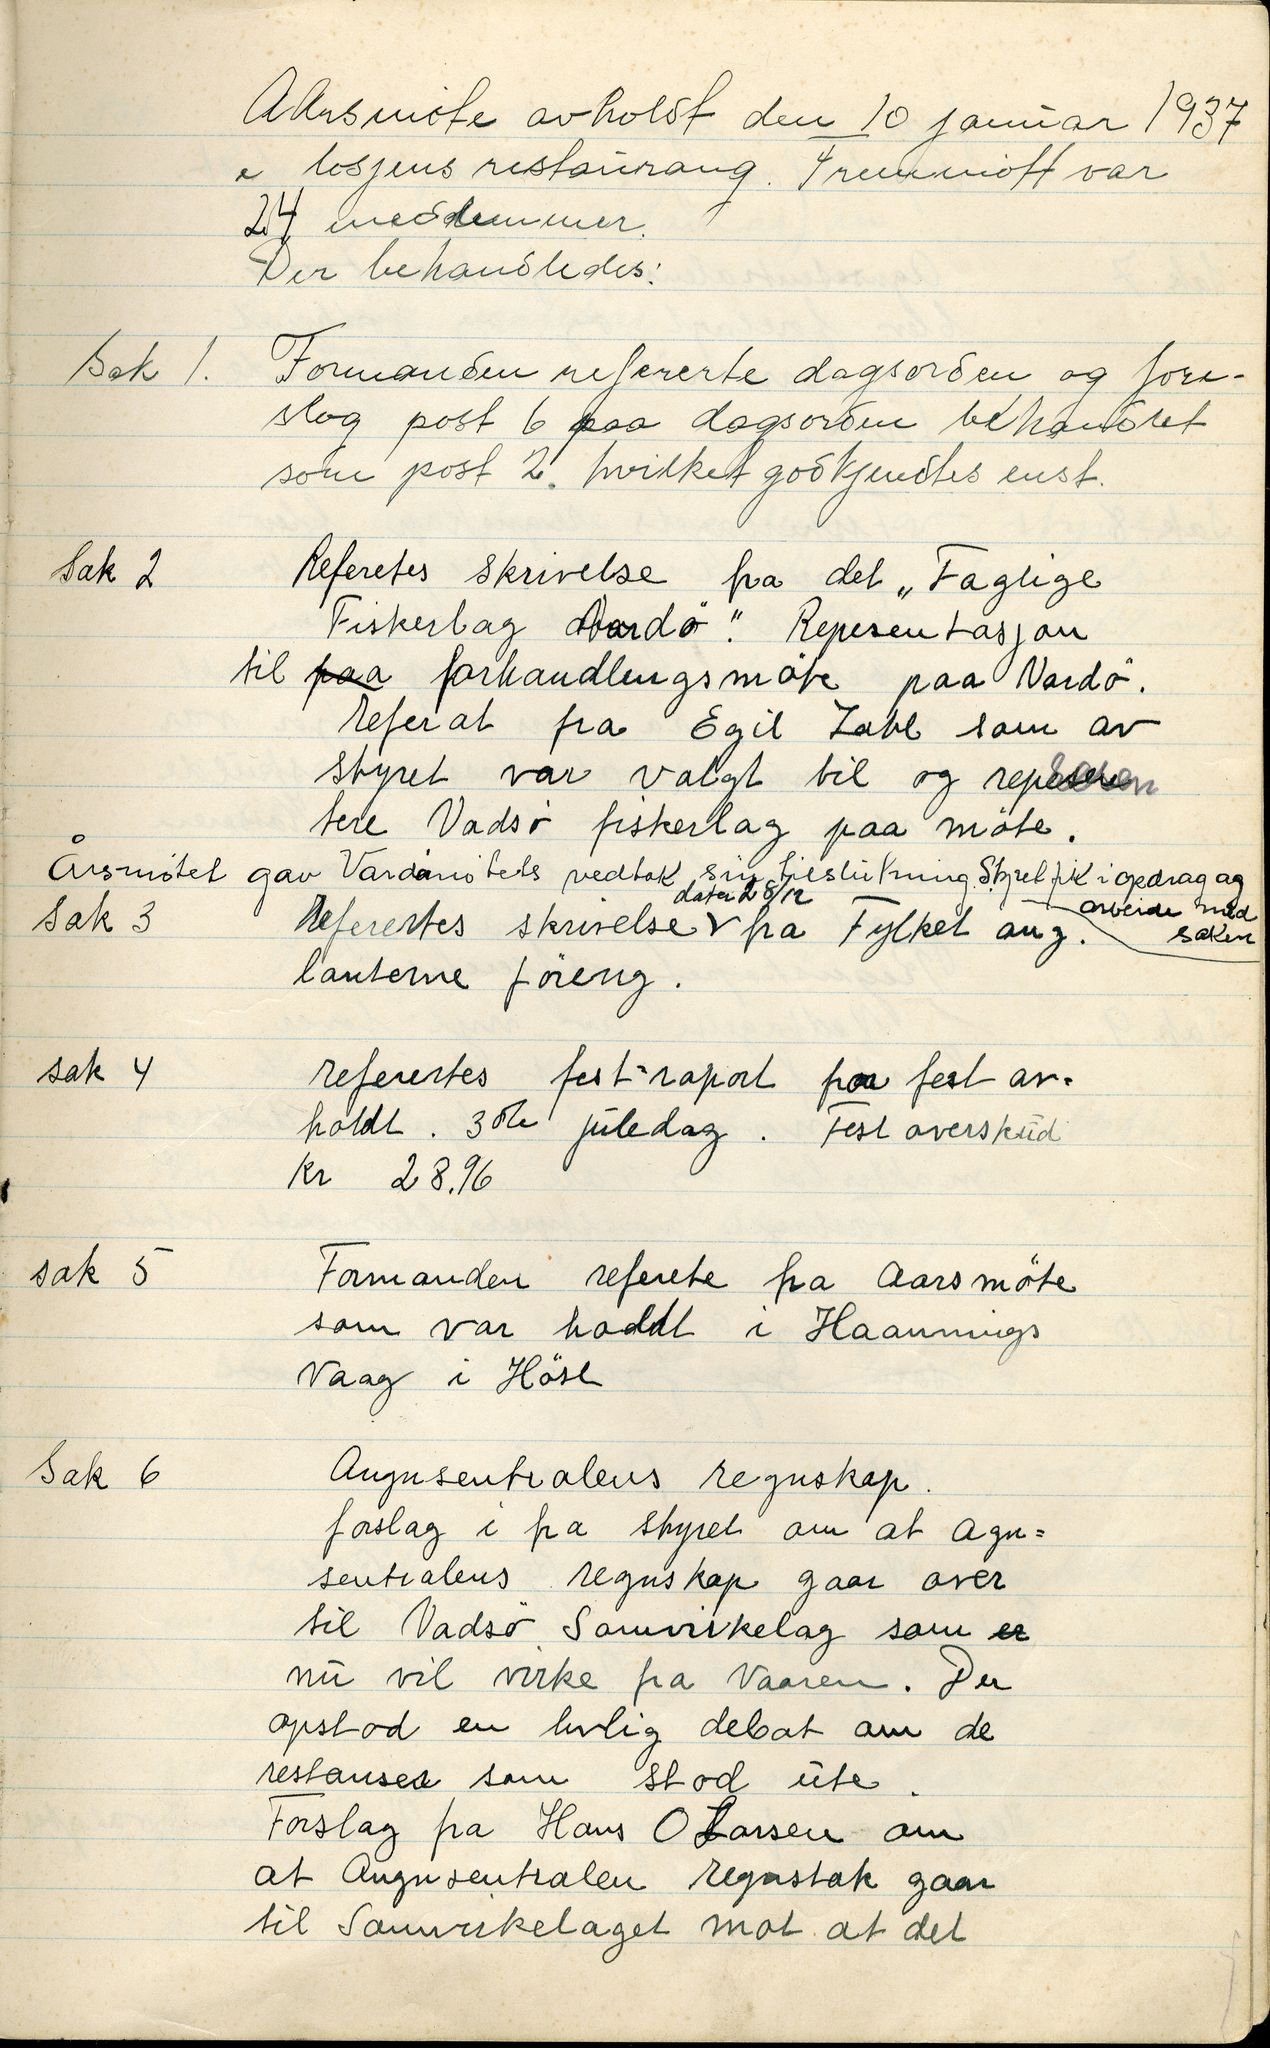 AArsmöte avholdt den 10 januar 1937
i losjens restaurang. Fremmött var
24 medlemmer.
Der behandledes:
Sak 1. Formanden refererte dagsorden og fore-
slog post 6 paa dagsorden behandlet
som post 2. hvilket godkjendtes enst.
Sak 2 Referetes skrivelse fra det „Faglige
Fiskerlag Vardö". Repesentasjon
til paa forhandlingsmöte paa Vardö.
Referat fra Egil Zahl som av
styret var valgt til og repesen
tere Vadsö fiskerlag paa möte.
Årsmötet gav Vardömötets vedtak sin tilslutning. Styret fik i opdrag og
arbeide med
saken
datert 28/12
Sak 3 Referertes skrivelse V fra Fylket ang.
lanterne föreng.
sak 4 referertes fest-raport fra fest av-
holdt. 3die juledag. Fest overskud
Kr 28.96
sak 5 Formanden referete fra Aarsmöte
som var holdt i Haannings
Vaag i Höst
Sak 6 Angnsentralens regnskap.
forslag i fra styret om at Agn=
sentralens regnskap gaar over
til Vadsö Samvirkelag som er
nu vil virke fra Vaaren. Der
opstod en livlig debat om de
restanser som stod ute.
Forslag fra Hans O Larsen om
at Angnsentralen regnskak gaar
til Samvirkelaget mot at det